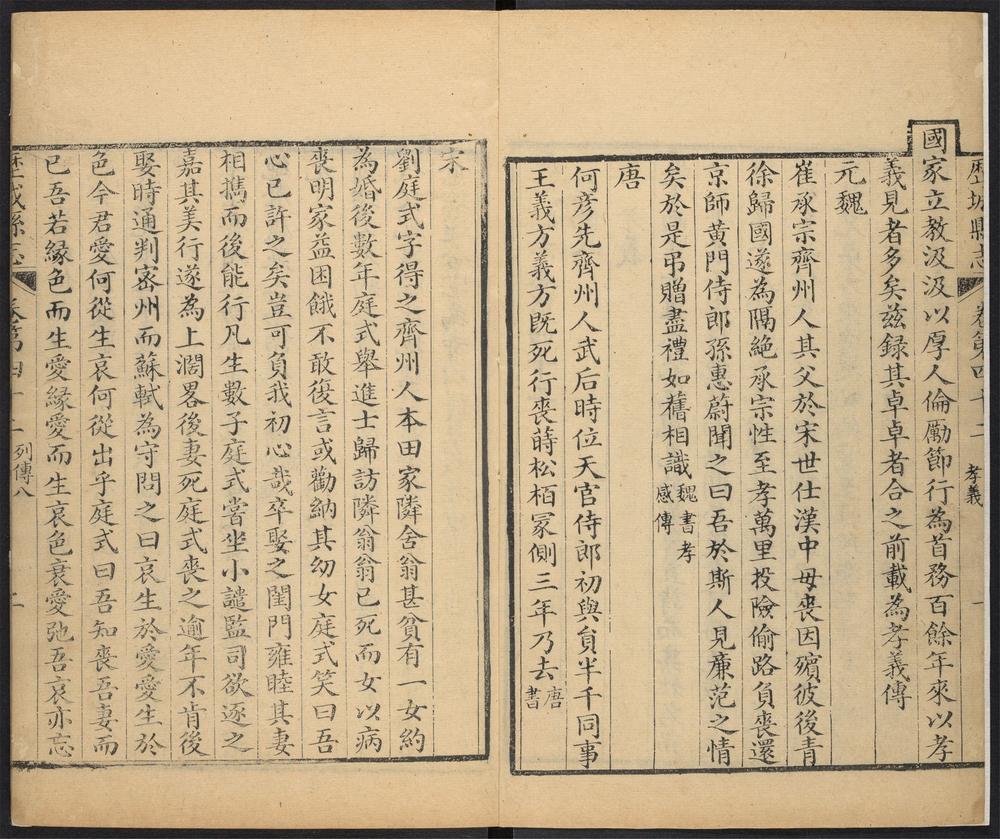 歷城縣志 卷第四十二 孝義 一
國家立教汲汲以厚人倫勵節行為首務百餘年來以孝
義見者多矣茲録其卓卓者合之前載為孝義傳
元魏
崔承宗齊州人其父於宋世仕漢中母喪因殯彼後青
徐歸國遂為隔絶承宗性至孝萬里投險偷路負喪還
京師黃門侍郎孫惠蔚聞之曰吾於斯人見廉范之情
矣於是弔贈盡禮如舊相識魏書孝感傳
唐
何彥先齊州人武后時位天官侍郎初與貟半千同事
王義方義方既死行喪蒔松栢冢側三年乃去唐書
宋
劉庭式字得之齊州人本田家隣舍翁甚貧有一女約
為婚後數年庭式舉進士歸訪隣翁翁已死而女以病
喪明家益困餓不敢復言或勸納其幼女庭式笑曰吾
心已許之矣豈可負我初心哉卒娶之閨門雍睦其妻
相攜而後能行凡生數子庭式嘗坐小譴監司欲逐之
嘉其美行遂為上濶畧後妻死庭式喪之逾年不肯後
娶時通判宻州而蘇軾為守問之曰哀生於愛愛生於
色今君愛何從生哀何從出乎庭式曰吾知喪吾妻而
已吾若緣色而生愛緣愛而生哀色衰愛弛吾哀亦忘
歷城縣志 卷第四十二 列傳八 二